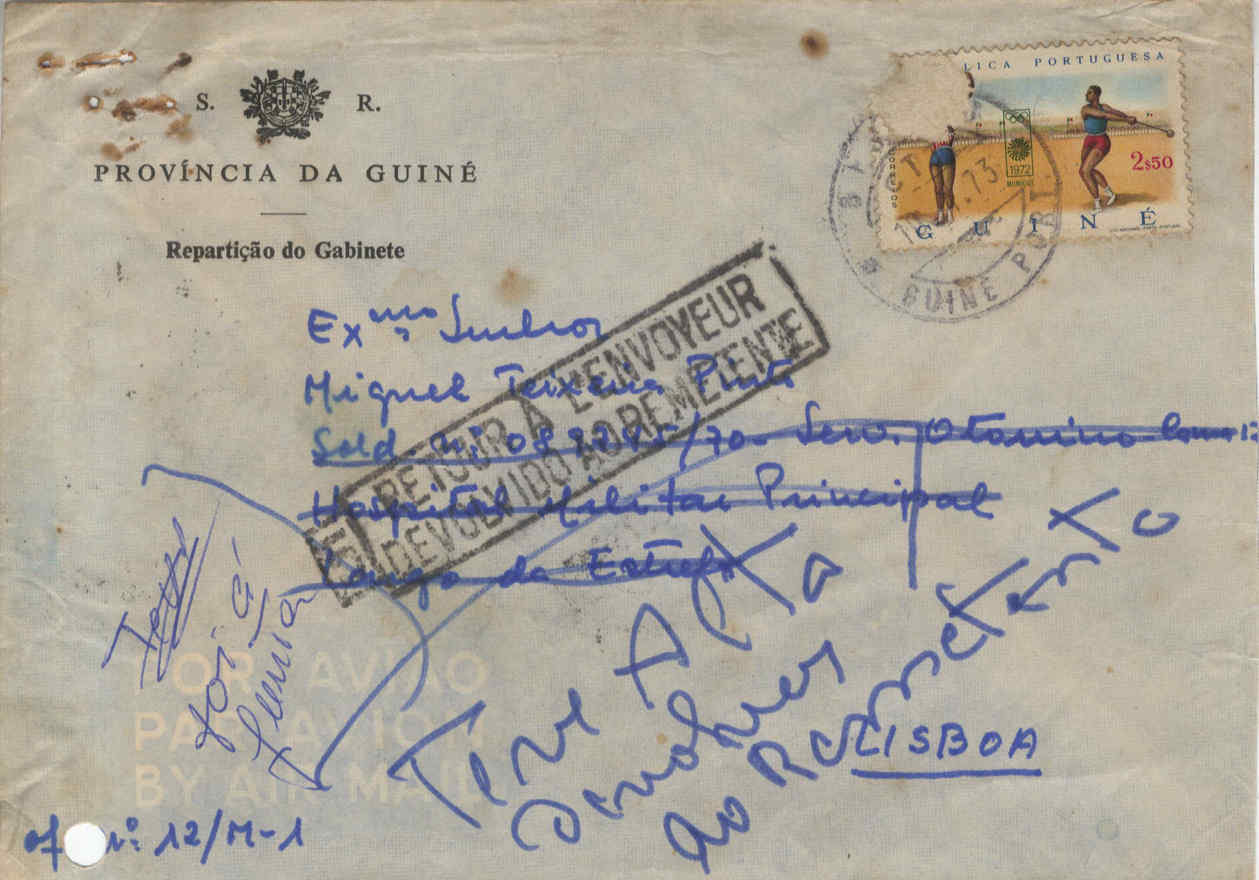 S. R.
PROVÍNCIA DA GUINÉ
Repartição do Gabinete
LICA PORTUGUESA
1972
MUNIQUE
2$50
GUINÉ
GUINÉ PORT
73
Exmo Senhor
Miguel Teixeira Pinto
Sold. /70 - Serv.
Hospital Militar Principal
Largo da Estrela
LISBOA
RETOUR A L'ENVOYEUR
DEVOLVIDO AO REMETENTE
Teve Alta
Devolver
ao Remetente
POR AVIÃO
PAR AVION
BY AIR MAIL
nº 12/M-1